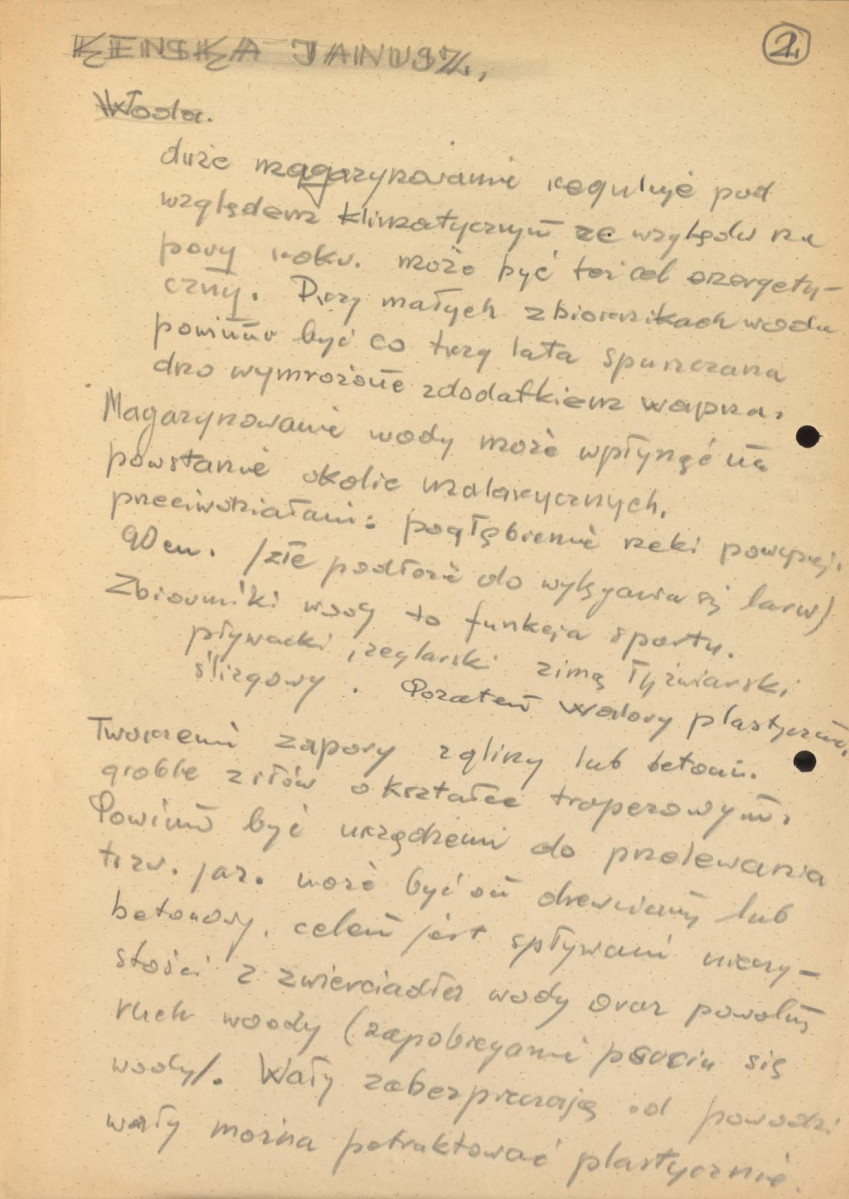 KĘNSKA JANUSZ, 2.
Woda.
duże magazynowanie reguluje pod
względem klimatycznym ze względu na
pory roku. może być też cel energety-
czny. Przy małych zbiornikach woda
powinna być co trzy lata spuszczana
dno wymrożone z dodatkiem wapna.
Magazynowanie wody może wpłynąć na
powstanie okolic malarycznych.
przeciwdziałanie: pogłębienie rzeki powyżej.
90 cm. /złe podłoże do wylęgania się larw)
Zbiorniki wody to funkcja sportu.
pływacki, żeglarski zimą łyżwiarski
ślizgowy. Pozatem walory plastyczne.
Tworzenie zapory z gliny lub beton.
groble z iłów o kształcie trapezowym.
Powinno być urządzenie do przelewania
tzw. jaz. może być on drewniany lub
betonowy. celem jest spływanie nieczy-
stości z zwierciadła wody oraz powolny
ruch wody (zapobieganie psuciu się
wody/. Wały zabezpieczają od powodzi
wały można potraktować plastycznie.